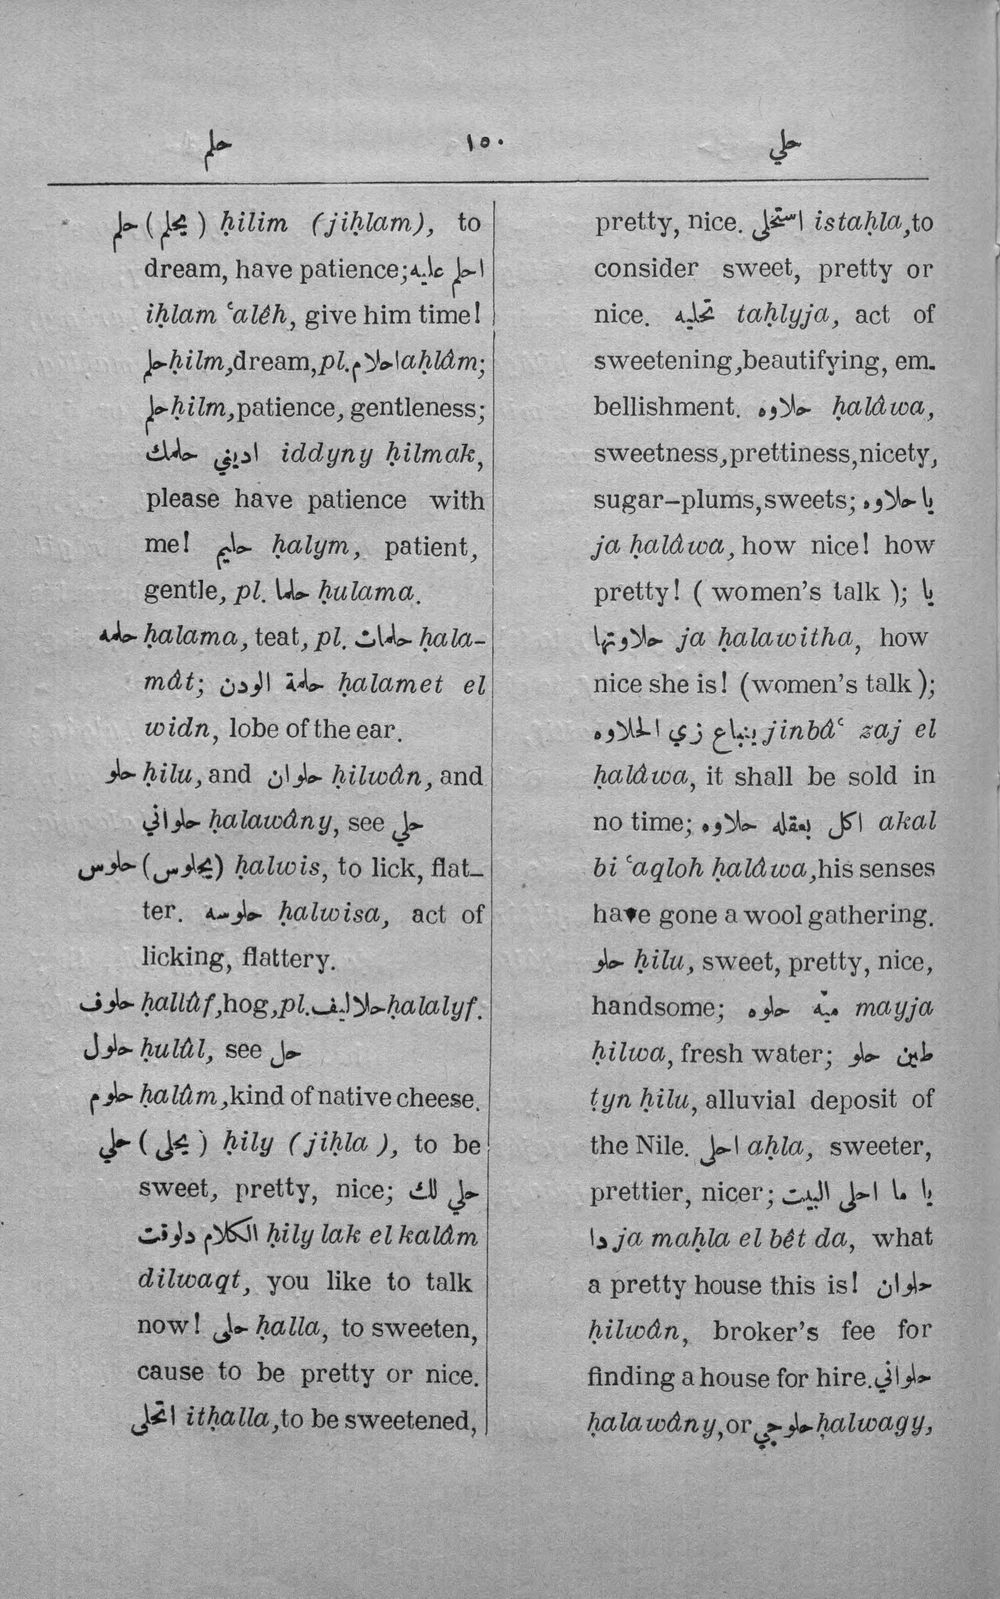 حلم ١٥٠ حلي
حلم (يحلم) ḥilim (jiḥlam), to
dream, have patience; احلم عليه
iḥlam ʿalêh, give him time!
حلم ḥilm, dream, pl. احلام aḥlâm;
حلم ḥilm, patience, gentleness;
اديني حلمك iddyny ḥilmak,
please have patience with
me! حليم ḥalym, patient,
gentle, pl. حلما ḥulama.
حلمه ḥalama, teat, pl. حلمات ḥala-
mât; حلمة الودن ḥalamet el
widn, lobe of the ear.
حلو ḥilu, and حلوان ḥilwân, and
حلواني ḥalawâny, see حلي
حلوس (يحلوس) ḥalwis, to lick, flat-
ter. حلوسه ḥalwisa, act of
licking, flattery.
حلوف ḥallûf, hog, pl. حلاليف ḥalalyf.
حلول ḥulûl, see حل
حلوم ḥalûm, kind of native cheese.
حلي (يحلى) ḥily (jiḥla), to be
sweet, pretty, nice; حلي لك
الكلام دلوقت ḥily lak el kalâm
dilwaqt, you like to talk
now! حلى ḥalla, to sweeten,
cause to be pretty or nice.
اتحلى itḥalla, to be sweetened,
pretty, nice. استحلى istaḥla, to
consider sweet, pretty or
nice. تحليه taḥlyja, act of
sweetening, beautifying, em-
bellishment. حلاوه ḥalâwa,
sweetness, prettiness, nicety,
sugar-plums, sweets; يا حلاوه
ja ḥalâwa, how nice! how
pretty! (women's talk); يا
حلاوتها ja ḥalawitha, how
nice she is! (women's talk);
ينباع زي الحلاوه jinbâʿ zaj el
ḥalâwa, it shall be sold in
no time; اكل بعقله حلاوه akal
bi ʿaqloh ḥalâwa, his senses
have gone a wool gathering.
حلو ḥilu, sweet, pretty, nice,
handsome; ميّه حلوه mayja
ḥilwa, fresh water; طين حلو
ṭyn ḥilu, alluvial deposit of
the Nile. احلى aḥla, sweeter,
prettier, nicer; يا ما احلى البيت
دا ja maḥla el bêt da, what
a pretty house this is! حلوان
ḥilwân, broker's fee for
finding a house for hire. حلواني
ḥalawâny, or حلوجي ḥalwagy,